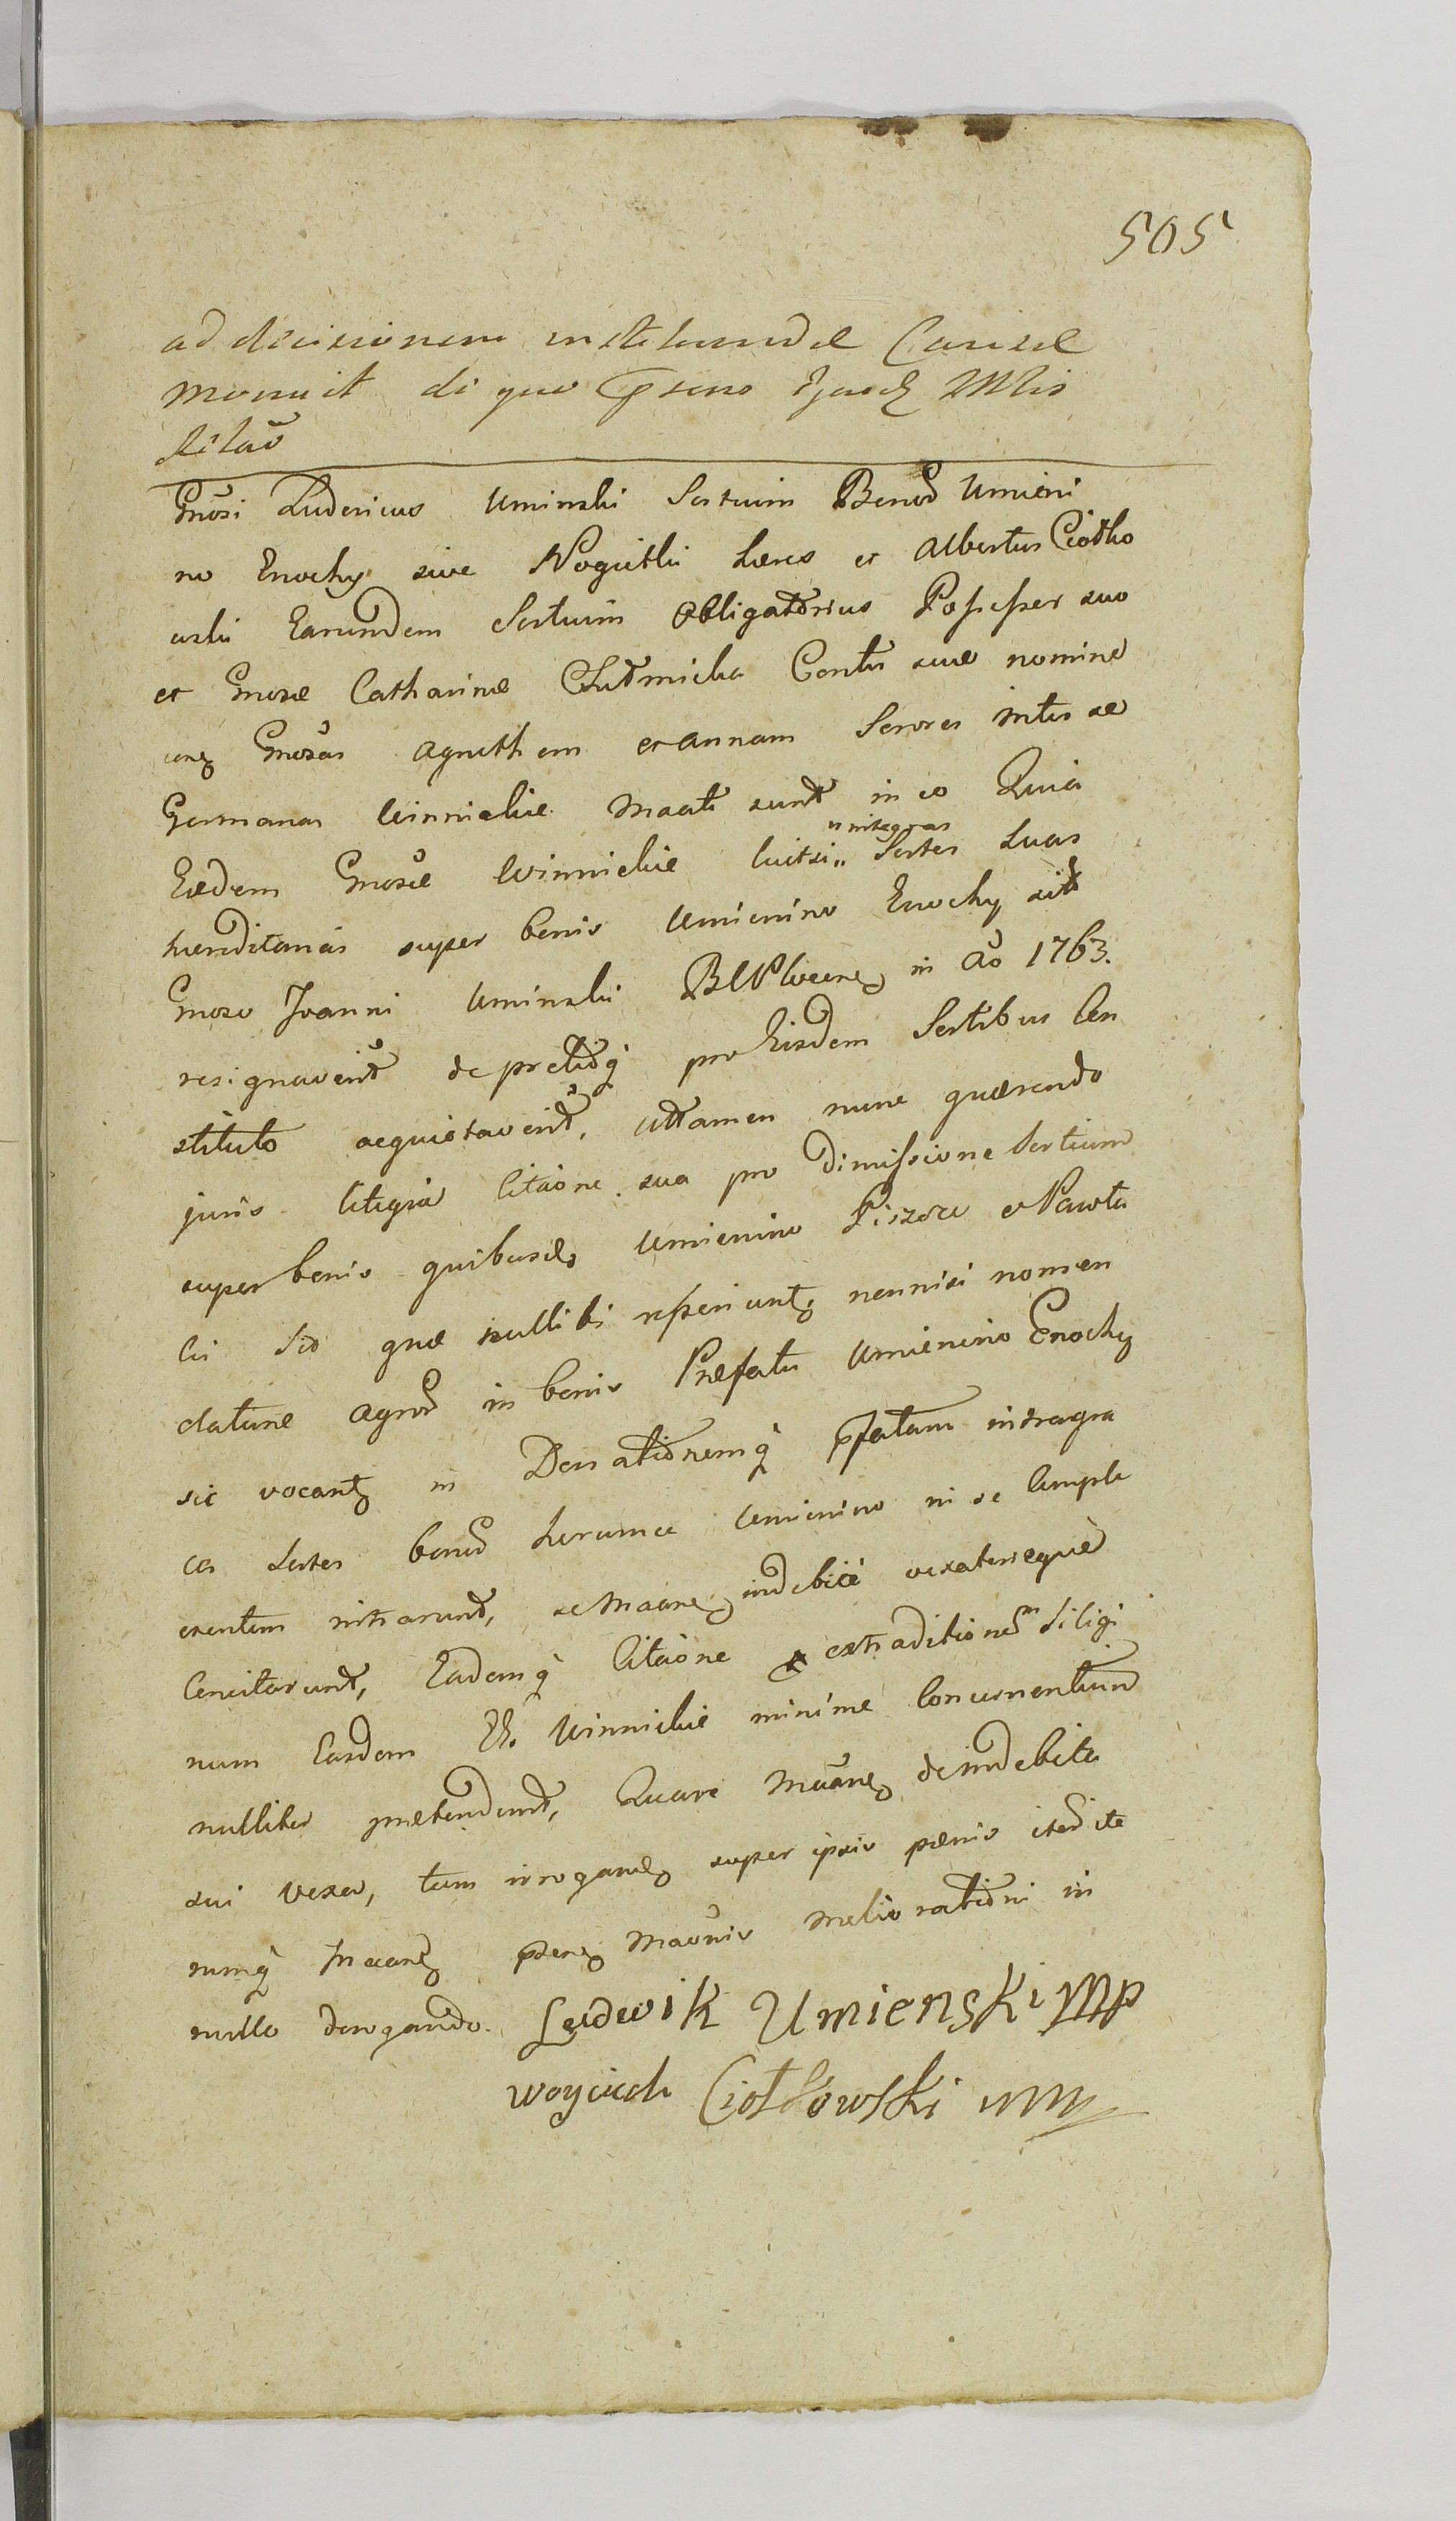 505
ad decisionem instituendae Causae
monuit de quo pnsens Ejusd Mtis
litao
Gnosi Ludovicus Uminski Sortium Bonor Umieni
no Enochy sive Noguitki haeres et Albertus Ciotko
wski Earumdem Sortium Obligatorius Possesser suo
et Gnosae Catharinae Contlis suae nomine
conq Gnosas Agnethem et annam Sorores inter se
Germanas Winnickie Maati sunt in eo Quia
Eaedem Gnosae Winnickie Sortes Suas
"integras
haereditarias super bonis Umienino Enochy sitas
Gnoso Joanni Uminski in Ao 1763.
resignaverint de pretioq pro Eisdem Sortibus Con
stituto acquietaverint, attamen nunc quaerendo
juris litigia Citaone sua pro dimissione Sortium
super bonis quibusd Umienino Piszcze et Pawła
ki Sed quae nullibi reperiunt, nonnisi nomen
claturae agror in bonis Praefatis Umienino Enochy
sic vocant in Donationemq pfatam
ces Sortes bonor horumce Umienino in se Comple
ctentem intrarunt, se Maane indebite vexatosequè
Concitarunt, Eademq Citaone extraditionem Siligi
num Easdem Winnickie minime Concernentium
nulliter praetendunt, Quare Maane de indebita
sui vexa, tum irrogand super ipsis paenis iterite
rumq Maant psens Maonis melio rationi in
nullo derogando. Ludwik Umienski Mp
Woyciech Ciotkowski mp